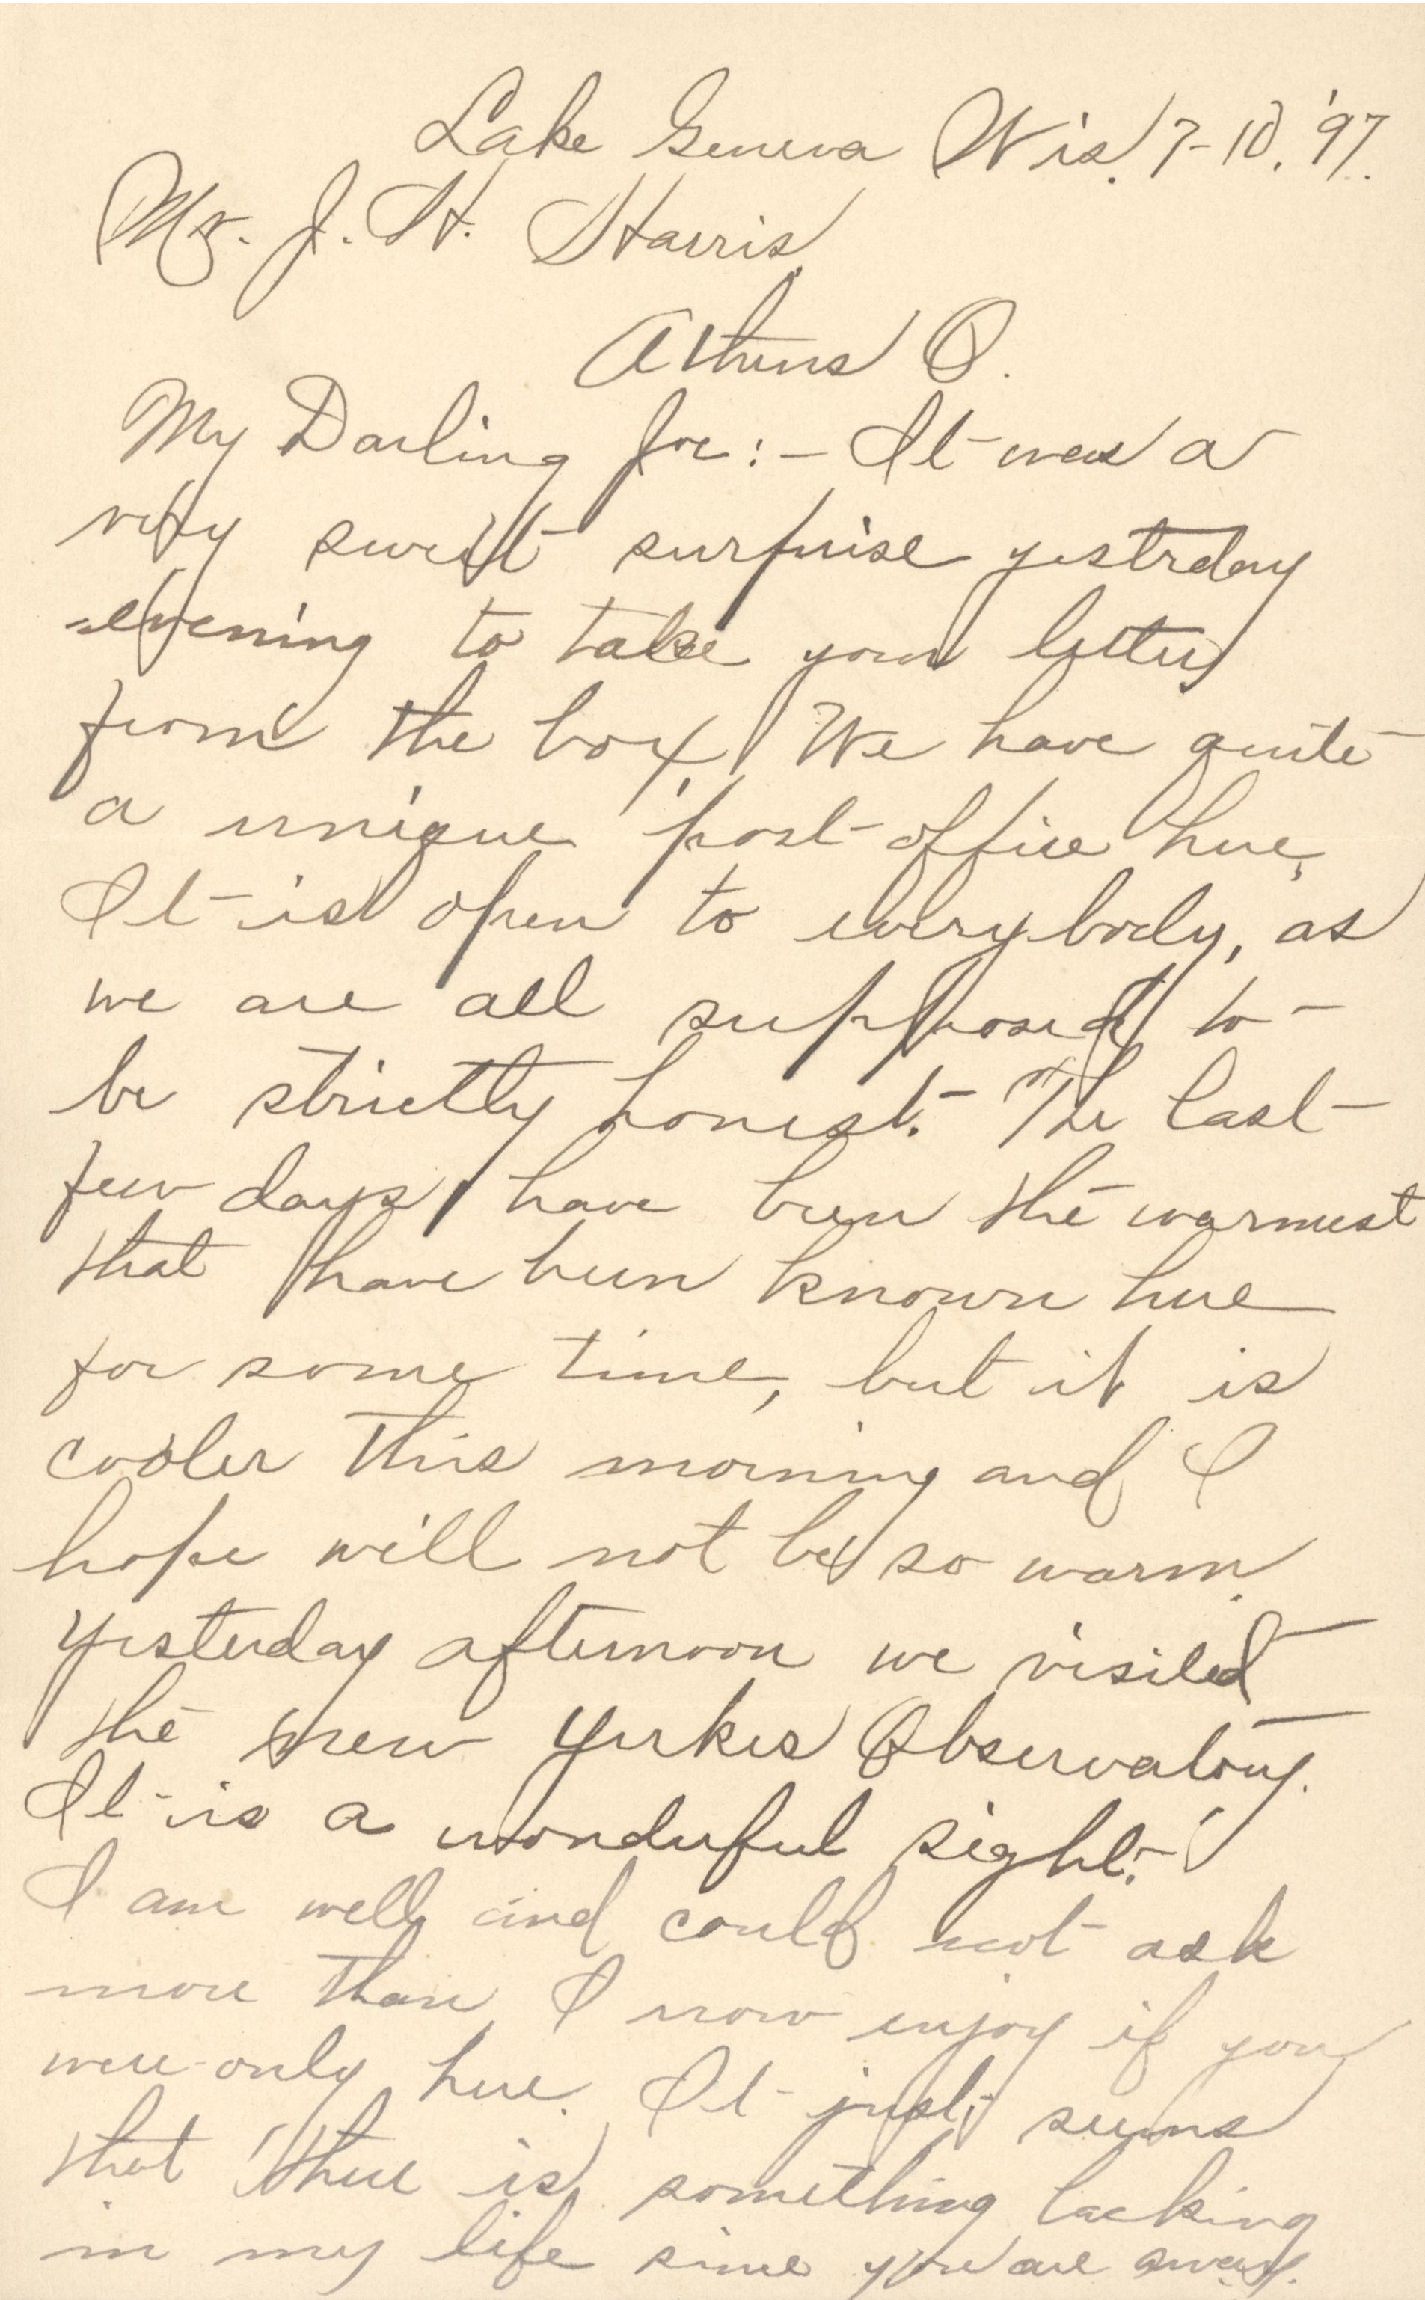 Lake Geneva Wis. 7-10. '97.
Mr. J. H. Harris,
Athens O.
My Darling Joe:- It was a
very sweet surprise yestrday
evening to take your letter
from the box. We have quite
a unique post-office here,
It is open to everybody, as
we are all supposed to
be strictly honest. The last
few days have been the warmest
that have been known here
for some time, but it is
cooler this morning and I
hope will not be so warm.
Yesterday afternoon we visited
the new Yerkes Observatory.
It is a wonderful sight!
I am well and could not ask
more than I now enjoy if you
were only here. It just seems
that there is something lacking
in my life since you are away.